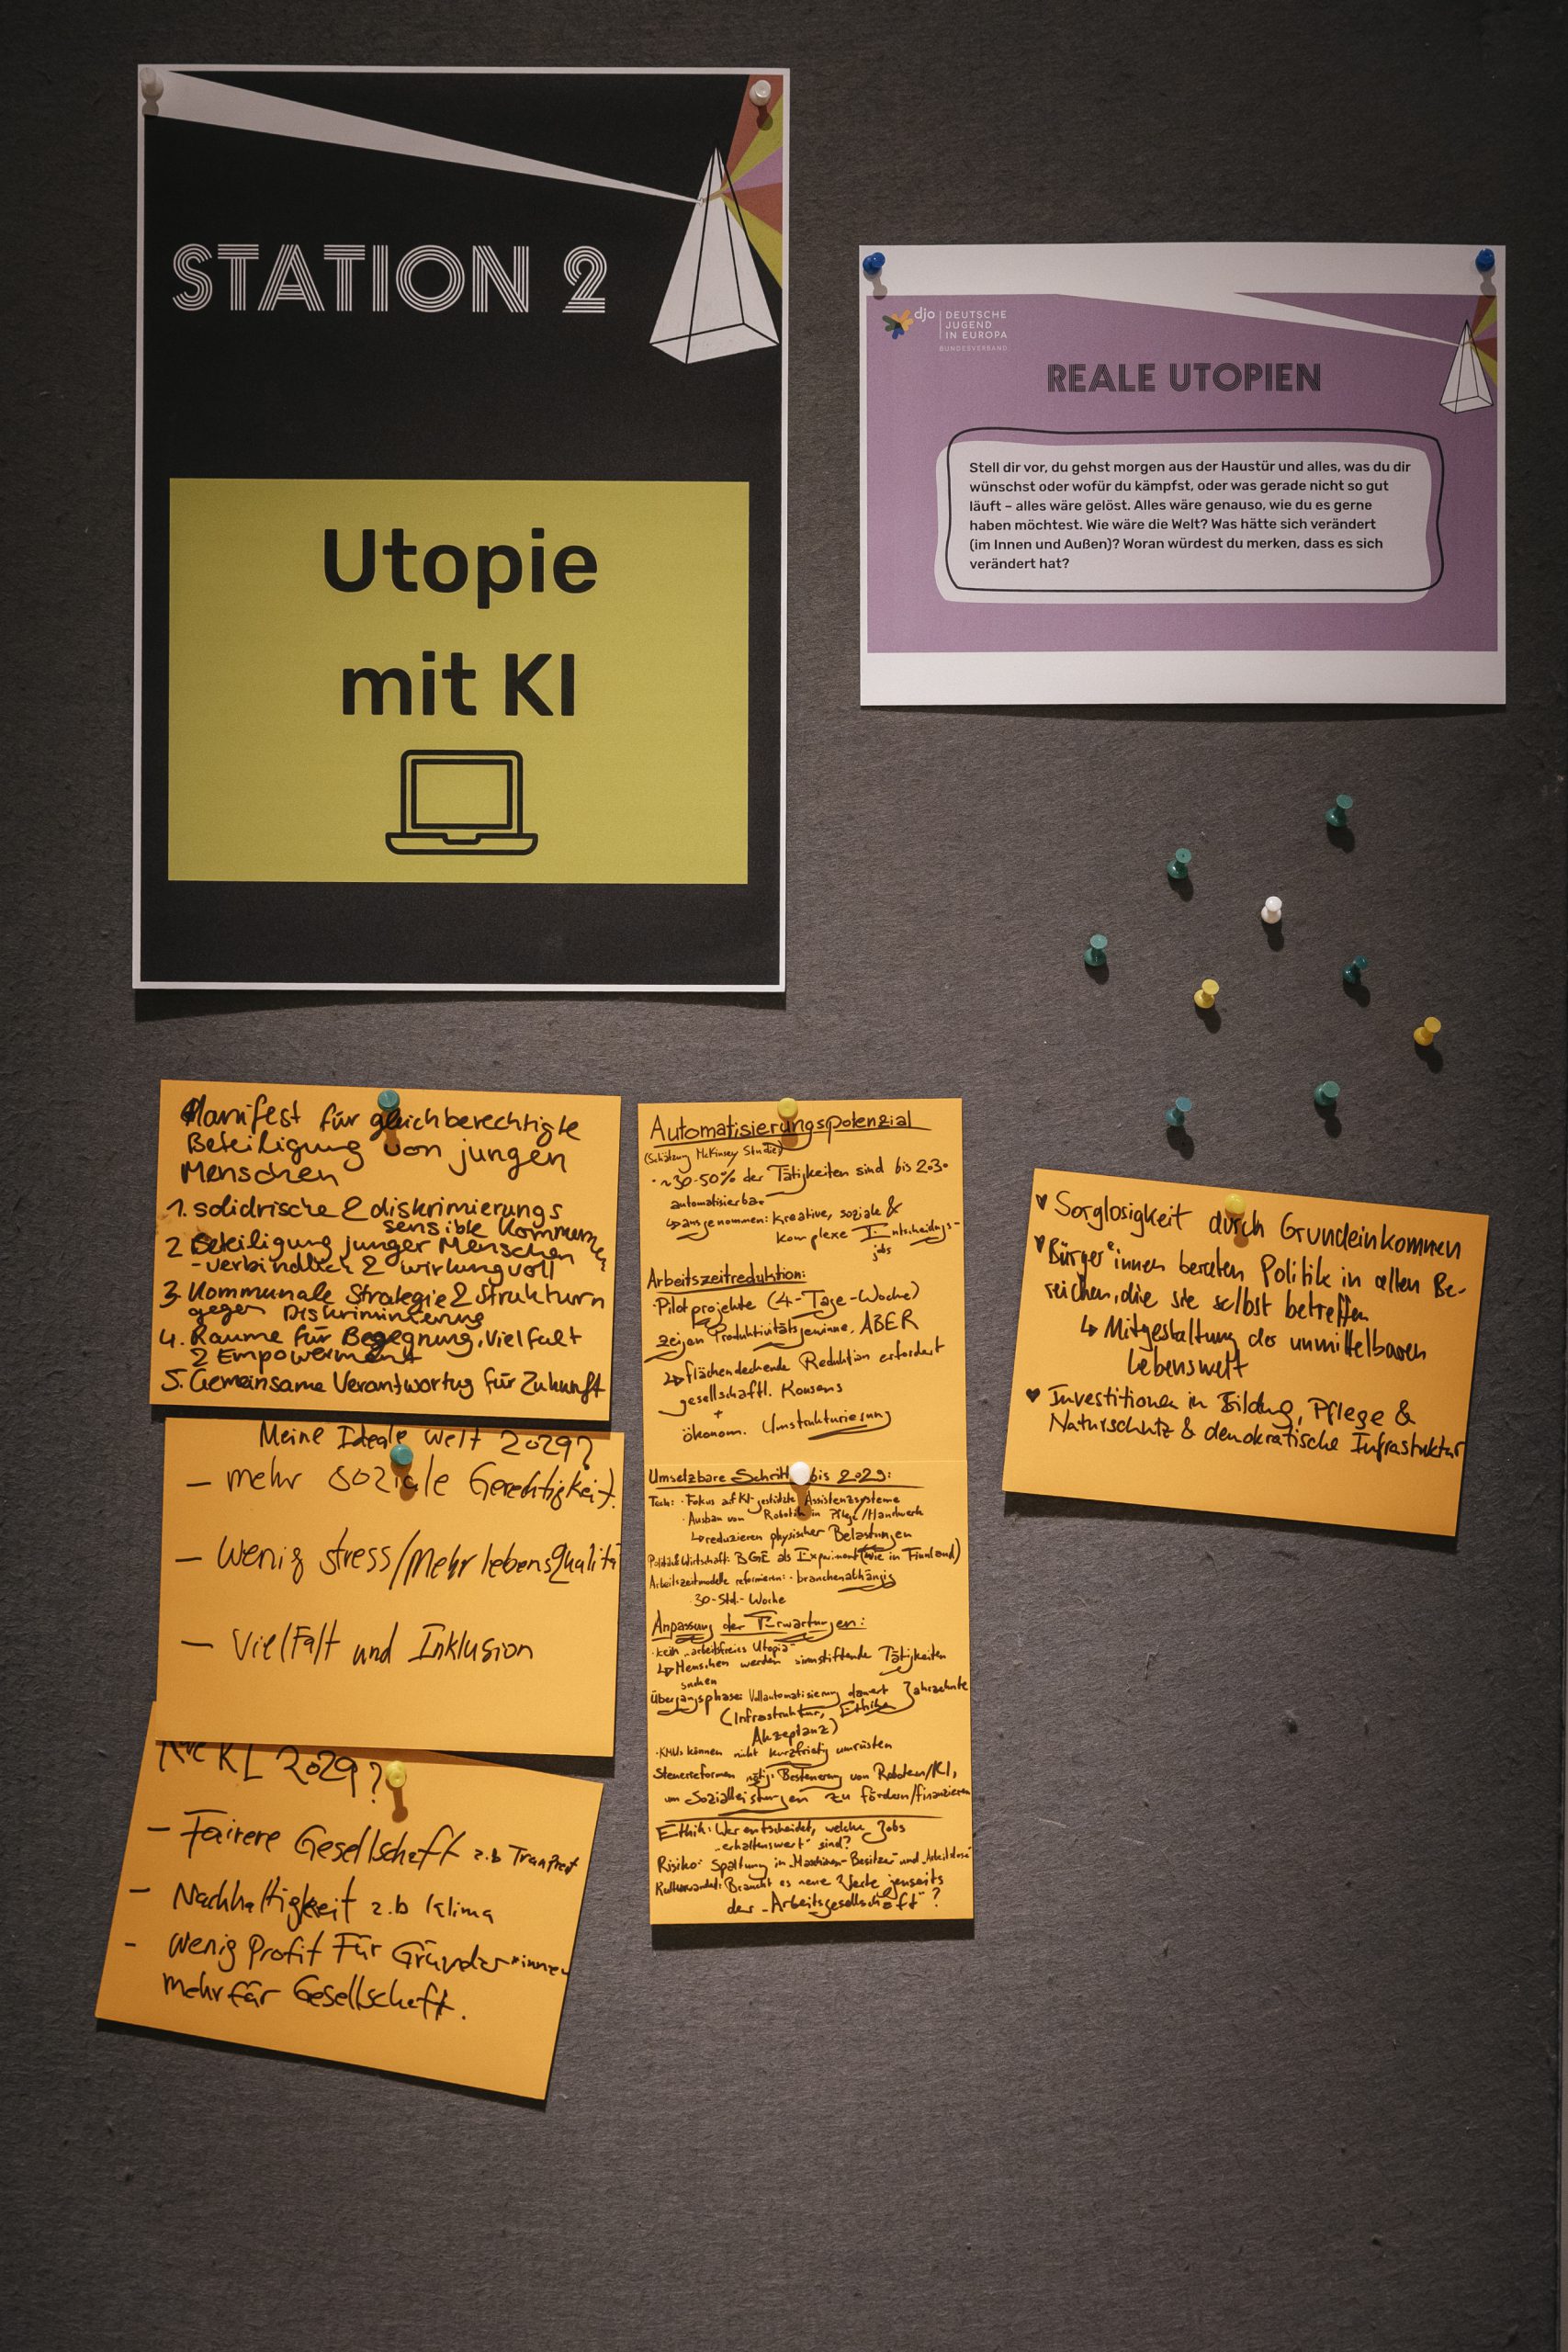 STATION 2
Utopie
mit KI
djo
DEUTSCHE
JUGEND
IN EUROPA
BUNDESVERBAND
REALE UTOPIEN
Stell dir vor, du gehst morgen aus der Haustür und alles, was du dir
wünschst oder wofür du kämpfst, oder was gerade nicht so gut
läuft – alles wäre gelöst. Alles wäre genauso, wie du es gerne
haben möchtest. Wie wäre die Welt? Was hätte sich verändert
(im Innen und Außen)? Woran würdest du merken, dass es sich
verändert hat?
Manifest für gleichberechtigte
Beteiligung von jungen
Menschen
1. solidrische & diskrimierungs
sensible Kommune
2 Beteiligung junger Menschen
- verbindlich & wirkungvoll
3. Kommunale Strategie & Strukturn
gegen Diskriminierung
4. Räume für Begegnung, Vielfalt
& Empowerment
5. Gemeinsame Verantwortug für Zukunft
Meine Ideale Welt 2029?
– mehr soziale Gerechtigkeit.
– Wenig stress/Mehr lebensQualitä
– Vielfalt und Inklusion
KI 2029?
– Fairere Gesellschaft z.b
– Nachhaltigkeit z.b Klima
- Wenig Profit Für Gründer*innen
mehr für Gesellschaft.
Automatisierungspotenzial
(Schätzung McKinsey Studie)
· ~30-50% der Tätigkeiten sind bis 2030
automatisierbar
↳ ausgenommen: kreative, soziale &
komplexe Entscheidungs-
jobs
Arbeitszeitreduktion:
· Pilotprojekte (4-Tage-Woche)
zeigen Produktivitätsgewinne, ABER
↳ flächendeckende Reduktion erfordert
gesellschaftl. Konsens
+
ökonom. Umstrukturierung
Umsetzbare Schritte bis 2029:
Tech: · Fokus auf KI-gestützte Assistenzsysteme
· Ausbau von Robotik in Pflege/Handwerk
↳ reduzieren physischer Belastungen
Politik&Wirtschaft: BGE als Experiment (wie in Finnland)
Arbeitszeitmodelle reformieren: · branchenabhängig
30-Std.-Woche
Anpassung der Erwartungen:
· kein „arbeitsfreies Utopia“
↳ Menschen werden sinnstiftende Tätigkeiten
suchen
Übergangsphase: Vollautomatisierung dauert Jahrzehnte
(Infrastruktur, Ethik
Akzeptanz)
· KMUs können nicht kurzfristig umrüsten
Steuerreformen nötig: Besteuerung von Robotern/KI,
um Sozialleistungen zu fördern/finanzieren
Ethik: Wer entscheidet, welche Jobs
„erhaltenswert“ sind?
Risiko: Spaltung in „Maschinen-Besitzer“ und „Arbeitslose“
Kulturwandel: Braucht es neue Werte jenseits
der „Arbeitsgesellschaft“?
♥ Sorglosigkeit durch Grundeinkommen
♥ Bürger*innen beraten Politik in allen Be-
reichen, die sie selbst betreffen
↳ Mitgestaltung der unmittelbaren
Lebenswelt
♥ Investitionen in Bildung, Pflege &
Naturschutz & demokratische Infrastruktur